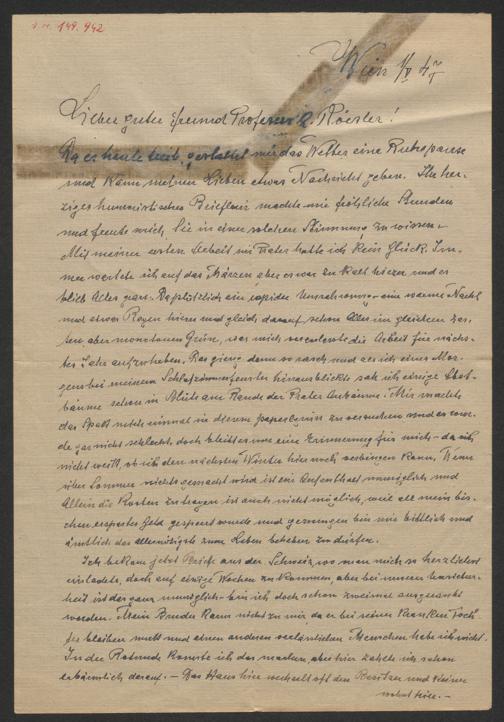 I.N. 149.942
Wien 1/V 47
Lieber guter Freund Professor R. Rösler!
Da es heute trüb, gestattet mir das Wetter eine Ruhepause
und kann meinen Lieben etwas Nachricht geben. Ihr her-
ziges humoristisches Brieflein machte mir fröhliche Stunden
und freute mich, Sie in einer solchen Stimmung zu wissen.
Mit meiner ersten Arbeit im Prater hatte ich kein Glück. Im-
mer wartete ich auf das aber es war zu kalt hiezu und es
blieb Alles grau. Da plötzlich ein rapider Umschwung – eine warme Nacht
und etwas Regen hiezu und gleich darauf schon Alles im gleichen zar-
ten aber monotonen Grün, was mich veranlasste die Arbeit für näch-
stes Jahr aufzuheben. Das gieng dann so rasch und als ich eines Mor-
gens bei meinem Schlafzimmerfenster hinausblickte sah ich einige Obst-
bäume schon in Blüte am Rande der Prater Aubäume. Mir machte
das Spaß noch einmal in diesem zu und es wur-
de gar nicht schlecht, doch bleibt es nur eine Erinnerung für mich – da ich
nicht weiß, ob ich den nächsten Winter hier noch verbringen kann. Wenn
über Sommer nichts gemacht wird ist ein Aufenthalt unmöglich und
Allein die Kosten zu tragen ist auch nicht möglich, weil all mein bis-
chen erspartes Geld gesperrt wurde und gezwungen bin nur bittlich und
ämtlich das allernötigste zum Leben beheben zu dürfen.
Ich bekam jetzt Briefe aus der Schweiz, wo man mich so herzlichst
einladete, doch auf einige Wochen zu kommen, aber bei unserer
heit ist das ganz unmöglich – bin ich doch schon zweimal ausgeraubt
worden. Mein Bruder kann nicht zu mir da er bei seiner kranken Toch-
ter bleiben muß und einen anderen verläßlichen Menschen habe ich nicht.
In der Rotunde konnte ich das machen, aber hier zahlte ich schon
erbärmlich darauf. – Das Haus hier wechselt oft den Besitzer und keiner
wohnt hier. –